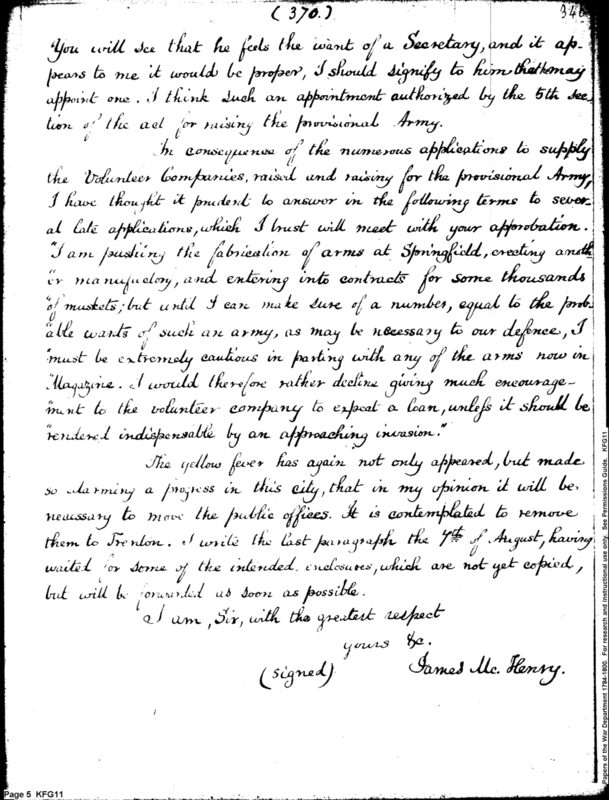 (370.)
346
You will see that he feels the want of a Secretary, and it ap-
pears to me it would be proper, I should signify to him that he may
appoint one. I think such an appointment authorized by the 5th sec-
tion of the act for raising the provisional Army.
In consequence of the numerous applications to supply
the Volunteer Companies, raised and raising for the provisional Army,
I have thought it prudent to answer in the following terms to sever-
al late applications, which I trust will meet with your approbation.
"I am pushing the fabrication of arms at Springfield, erecting anoth
"er manufactory, and entering into contracts for some thousands
"of muskets; but until I can make sure of a number, equal to the prob-
"able wants of such an army, as may be necessary to our defence, I
"must be extremely cautious in parting with any of the arms now in
"Magazine. I would therefore rather decline giving much encourage-
"ment to the volunteer company to expect a loan, unless it should be
"rendered indispensable by an approaching invasion."
The yellow fever has again not only appeared, but made
so alarming a progress in this city, that in my opinion it will be
necessary to move the public offices. It is contemplated to remove
them to Trenton. I write the last paragraph the 7th of August, having
waited for some of the intended enclosures, which are not yet copied,
but will be forwarded as soon as possible.
I am, Sir, with the greatest respect
yours &c.
(signed) James Mc. Henry.
Page 5 KFG11
Papers of the War Department 1784-1800. For research and instructional use only. See Permissions Guide. KFG11